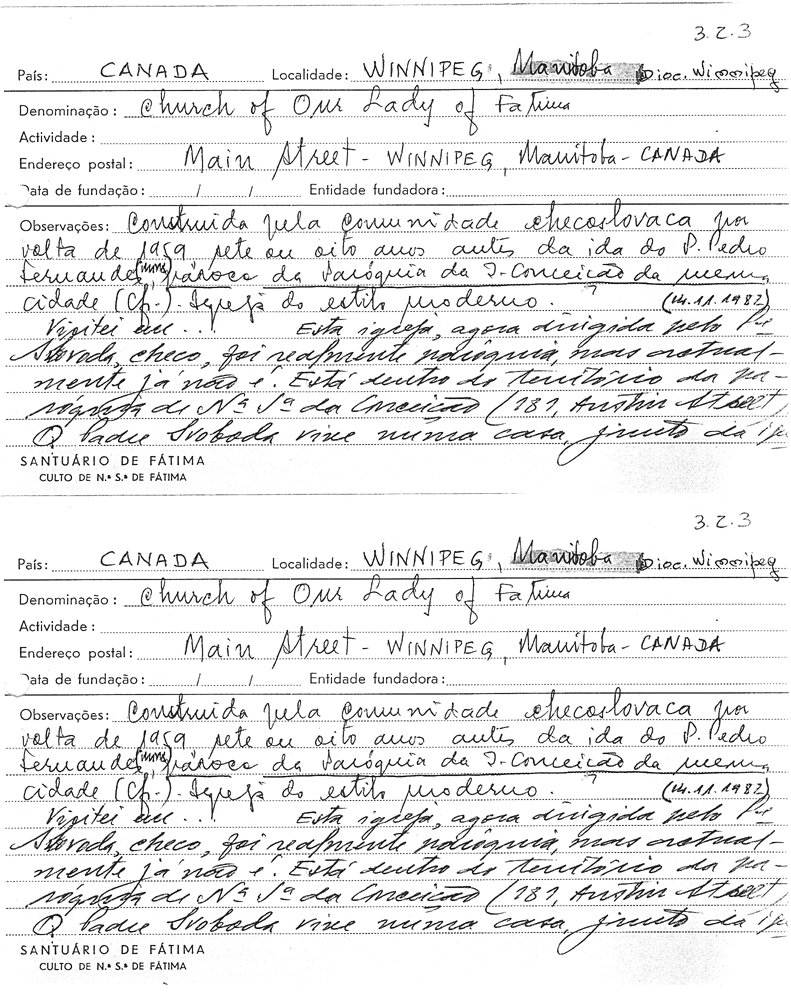 3.2.3
País: CANADA Localidade: WINNIPEG, Manitoba Dioc. Winnipeg
Denominação: Church of Our Lady of Fatima
Actividade:
Endereço postal: Main Street - WINNIPEG, Manitoba - CANADA
Data de fundação: / / Entidade fundadora:
Observações: Construida pela comunidade checoslovaca por
volta de 1959 sete ou oito anos antes da ida do P. Pedro
Fernandes pároco da Paróquia da I. Conceicão da mesma
cidade (Cf.). Igreja do estilo moderno. (14.11.1982)
Visitei em...! Esta igreja, agora dirigida pelo Pe
Svovoda, checo, foi realmente paróquia, mas actual-
mente já não é. Está dentro do território da pa-
róquia de Nª Sª da Conceicão (181, Austin Street)
O Padre Svoboda vive numa casa, junto da
SANTUÁRIO DE FÁTIMA
CULTO DE N.ª S.ª DE FÁTIMA
3.2.3
País: CANADA Localidade: WINNIPEG, Manitoba Dioc. Winnipeg
Denominação: Church of Our Lady of Fatima
Actividade:
Endereço postal: Main Street - WINNIPEG, Manitoba - CANADA
Data de fundação: / / Entidade fundadora:
Observações: Construida pela comunidade checoslovaca por
volta de 1959 sete ou oito anos antes da ida do P. Pedro
Fernandes pároco da Paróquia da I. Conceicão da mesma
cidade (Cf.). Igreja do estilo moderno. (14.11.1982)
Visitei em...! Esta igreja, agora dirigida pelo Pe
Svovoda, checo, foi realmente paróquia, mas actual-
mente já não é. Está dentro do território da pa-
róquia de Nª Sª da Conceicão (181, Austin Street)
O Padre Svoboda vive numa casa, junto da
SANTUÁRIO DE FÁTIMA
CULTO DE N.ª S.ª DE FÁTIMA